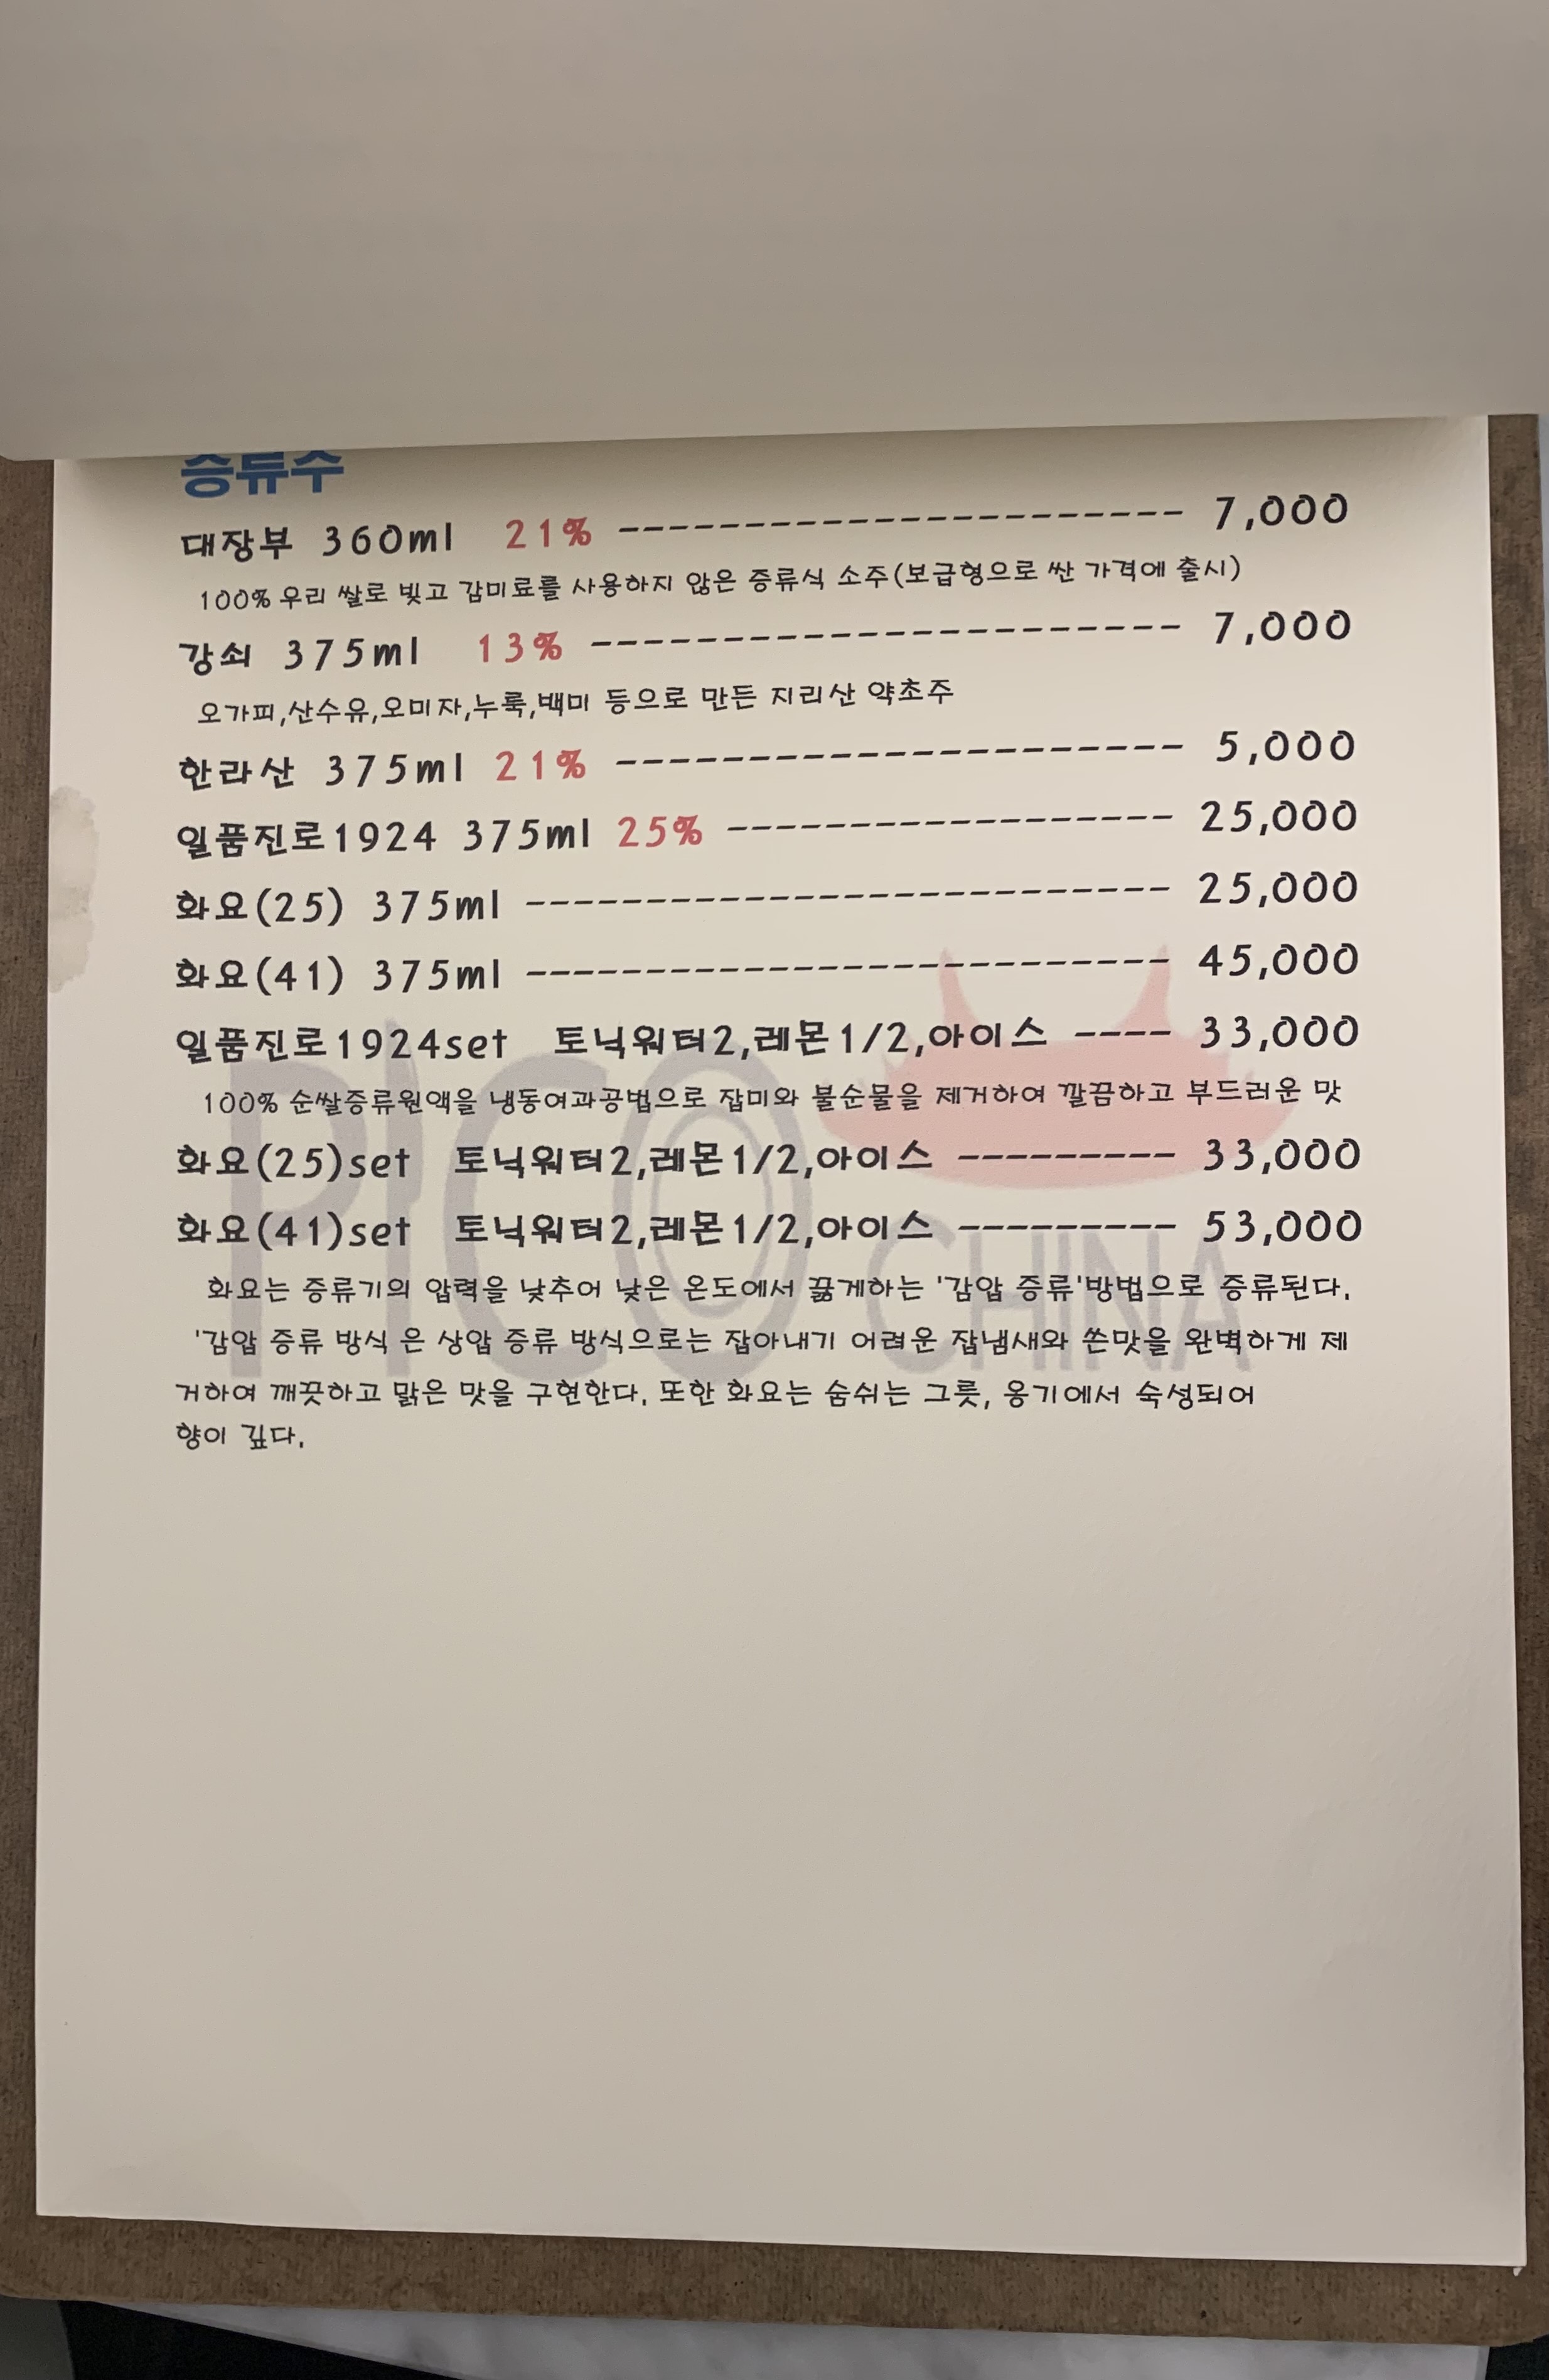 증류수
대장부 360ml 21% ---------------------- 7,000
100% 우리 쌀로 빚고 감미료를 사용하지 않은 증류식 소주(보급형으로 싼 가격에 출시)
강쇠 375ml 13% ----------------------- 7,000
오가피,산수유,오미자,누룩,백미 등으로 만든 지리산 약초주
한라산 375ml 21% ---------------------- 5,000
일품진로1924 375ml 25% ------------------ 25,000
화요(25) 375ml ------------------------- 25,000
화요(41) 375ml ------------------------- 45,000
일품진로1924set 토닉워터2,레몬1/2,아이스 ---- 33,000
100% 순쌀증류원액을 냉동여과공법으로 잡미와 불순물을 제거하여 깔끔하고 부드러운 맛
화요(25)set 토닉워터2,레몬1/2,아이스 --------- 33,000
화요(41)set 토닉워터2,레몬1/2,아이스 --------- 53,000
화요는 증류기의 압력을 낮추어 낮은 온도에서 끓게하는 '감압 증류'방법으로 증류된다.
'감압 증류 방식 은 상압 증류 방식으로는 잡아내기 어려운 잡냄새와 쓴맛을 완벽하게 제
거하여 깨끗하고 맑은 맛을 구현한다. 또한 화요는 숨쉬는 그릇, 옹기에서 숙성되어
향이 깊다.
PICO CHINA